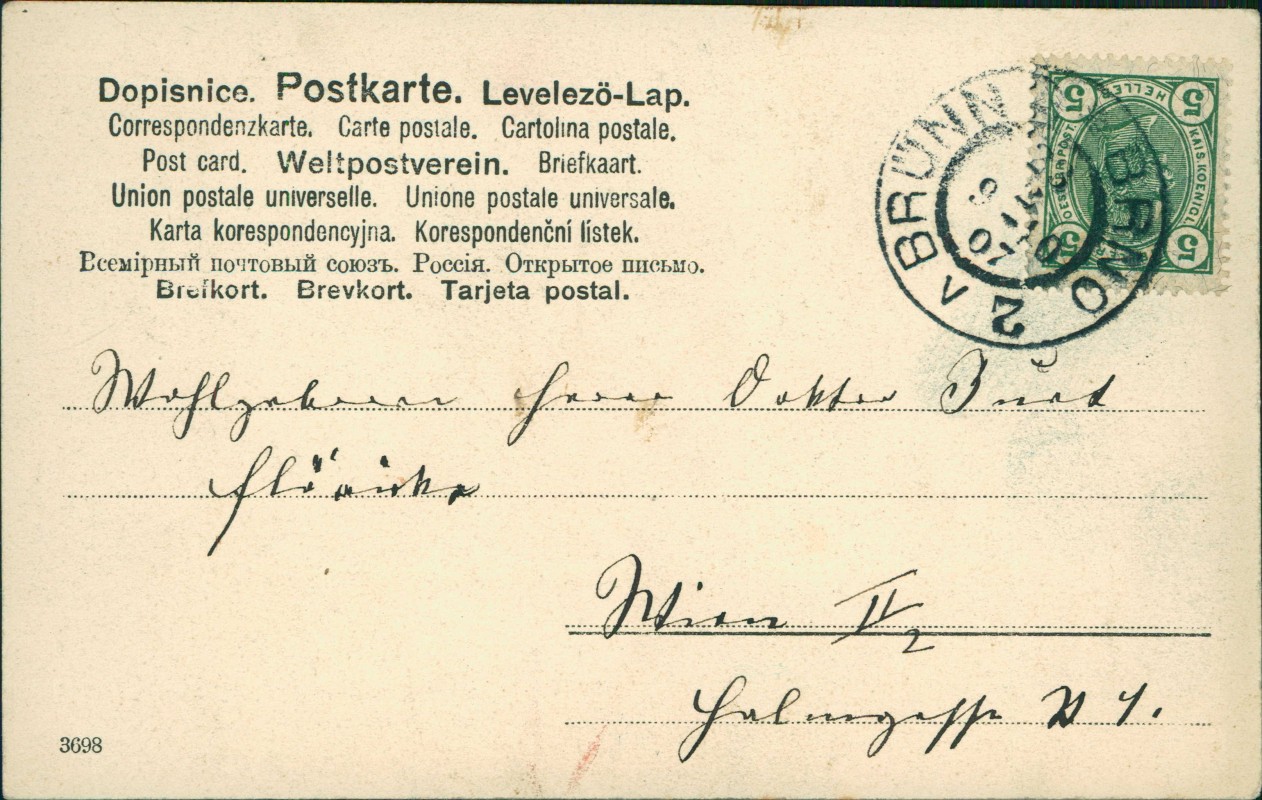 Dopisnice. Postkarte. Levelezö-Lap.
Correspondenzkarte. Carte postale. Cartolina postale.
Post card. Weltpostverein. Briefkaart.
Union postale universelle. Unione postale universale.
Karta korespondencyjna. Korespondenční lístek.
Всемірный почтовый союзъ. Россія. Открытое письмо.
Brefkort. Brevkort. Tarjeta postal.
BRÜNN BRNO
2 v
5 HELLER 5
KAIS. KOENIGL.
5 5
Wohlgeboren Herrn Doktor
Wien II/2
Halmgasse N 1.
3698